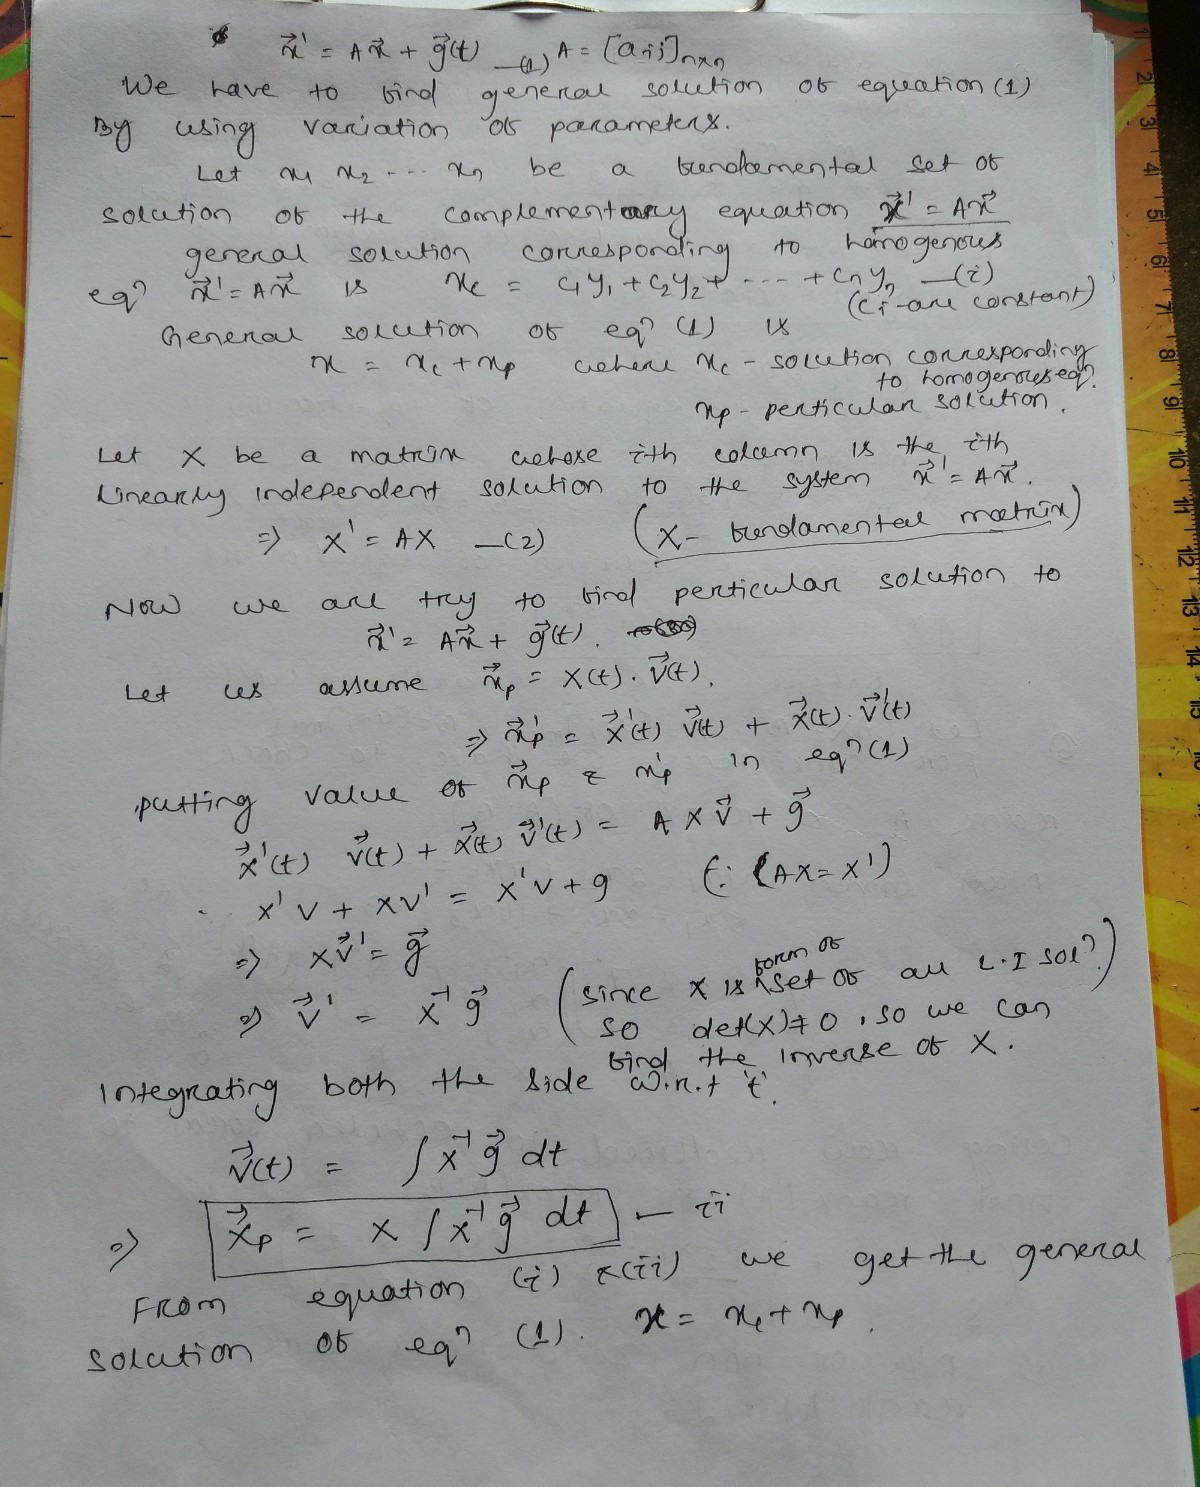 x⃗' = Ax⃗ + g⃗(t) —(1) A = [aij]n×n
We have to find general solution of equation (1)
By using variation of parameters.
Let x1 x2 --- xn be a fundamental set of
solution of the complementary equation x⃗' = Ax⃗
general solution corresponding to homogenous
eqn x⃗' = Ax⃗ is xc = c1y1 + c2y2 + --- + cnyn —(i)
(ci - are constant)
General solution of eqn (1) is
x = xc + xp where xc - solution corresponding
to homogenous eqn.
xp - perticular solution.
Let X be a matrix whose ith column is the ith
linearly independent solution to the system x⃗' = Ax⃗.
=> X' = AX —(2) (X - fundamental matrix)
Now we are try to find perticular solution to
x⃗' = Ax⃗ + g⃗(t).
Let us assume x⃗p = X(t). v⃗(t).
=> x⃗p' = x⃗'(t) v⃗(t) + x⃗(t). v⃗'(t)
putting value of x⃗p & x'p in eqn (1)
x⃗'(t) v⃗(t) + x⃗(t) v⃗'(t) = A X v⃗ + g⃗
X'v + Xv' = X'v + g (∵ (AX = X')
=> Xv⃗' = g⃗
=> v⃗' = X⁻¹ g⃗ (since X is form of set of all L.I soln.)
so det(X) ≠ 0, so we can
find the inverse of X.
Integrating both the side w.r.t 't'.
v⃗(t) = ∫ X⁻¹ g⃗ dt
=> x⃗p = X ∫ X⁻¹ g⃗ dt — ii
From equation (i) & (ii) we get the general
solution of eqn (1). x = xc + xp.
12 13 14 15
2 3 4 5 6 7 8 9 10 11